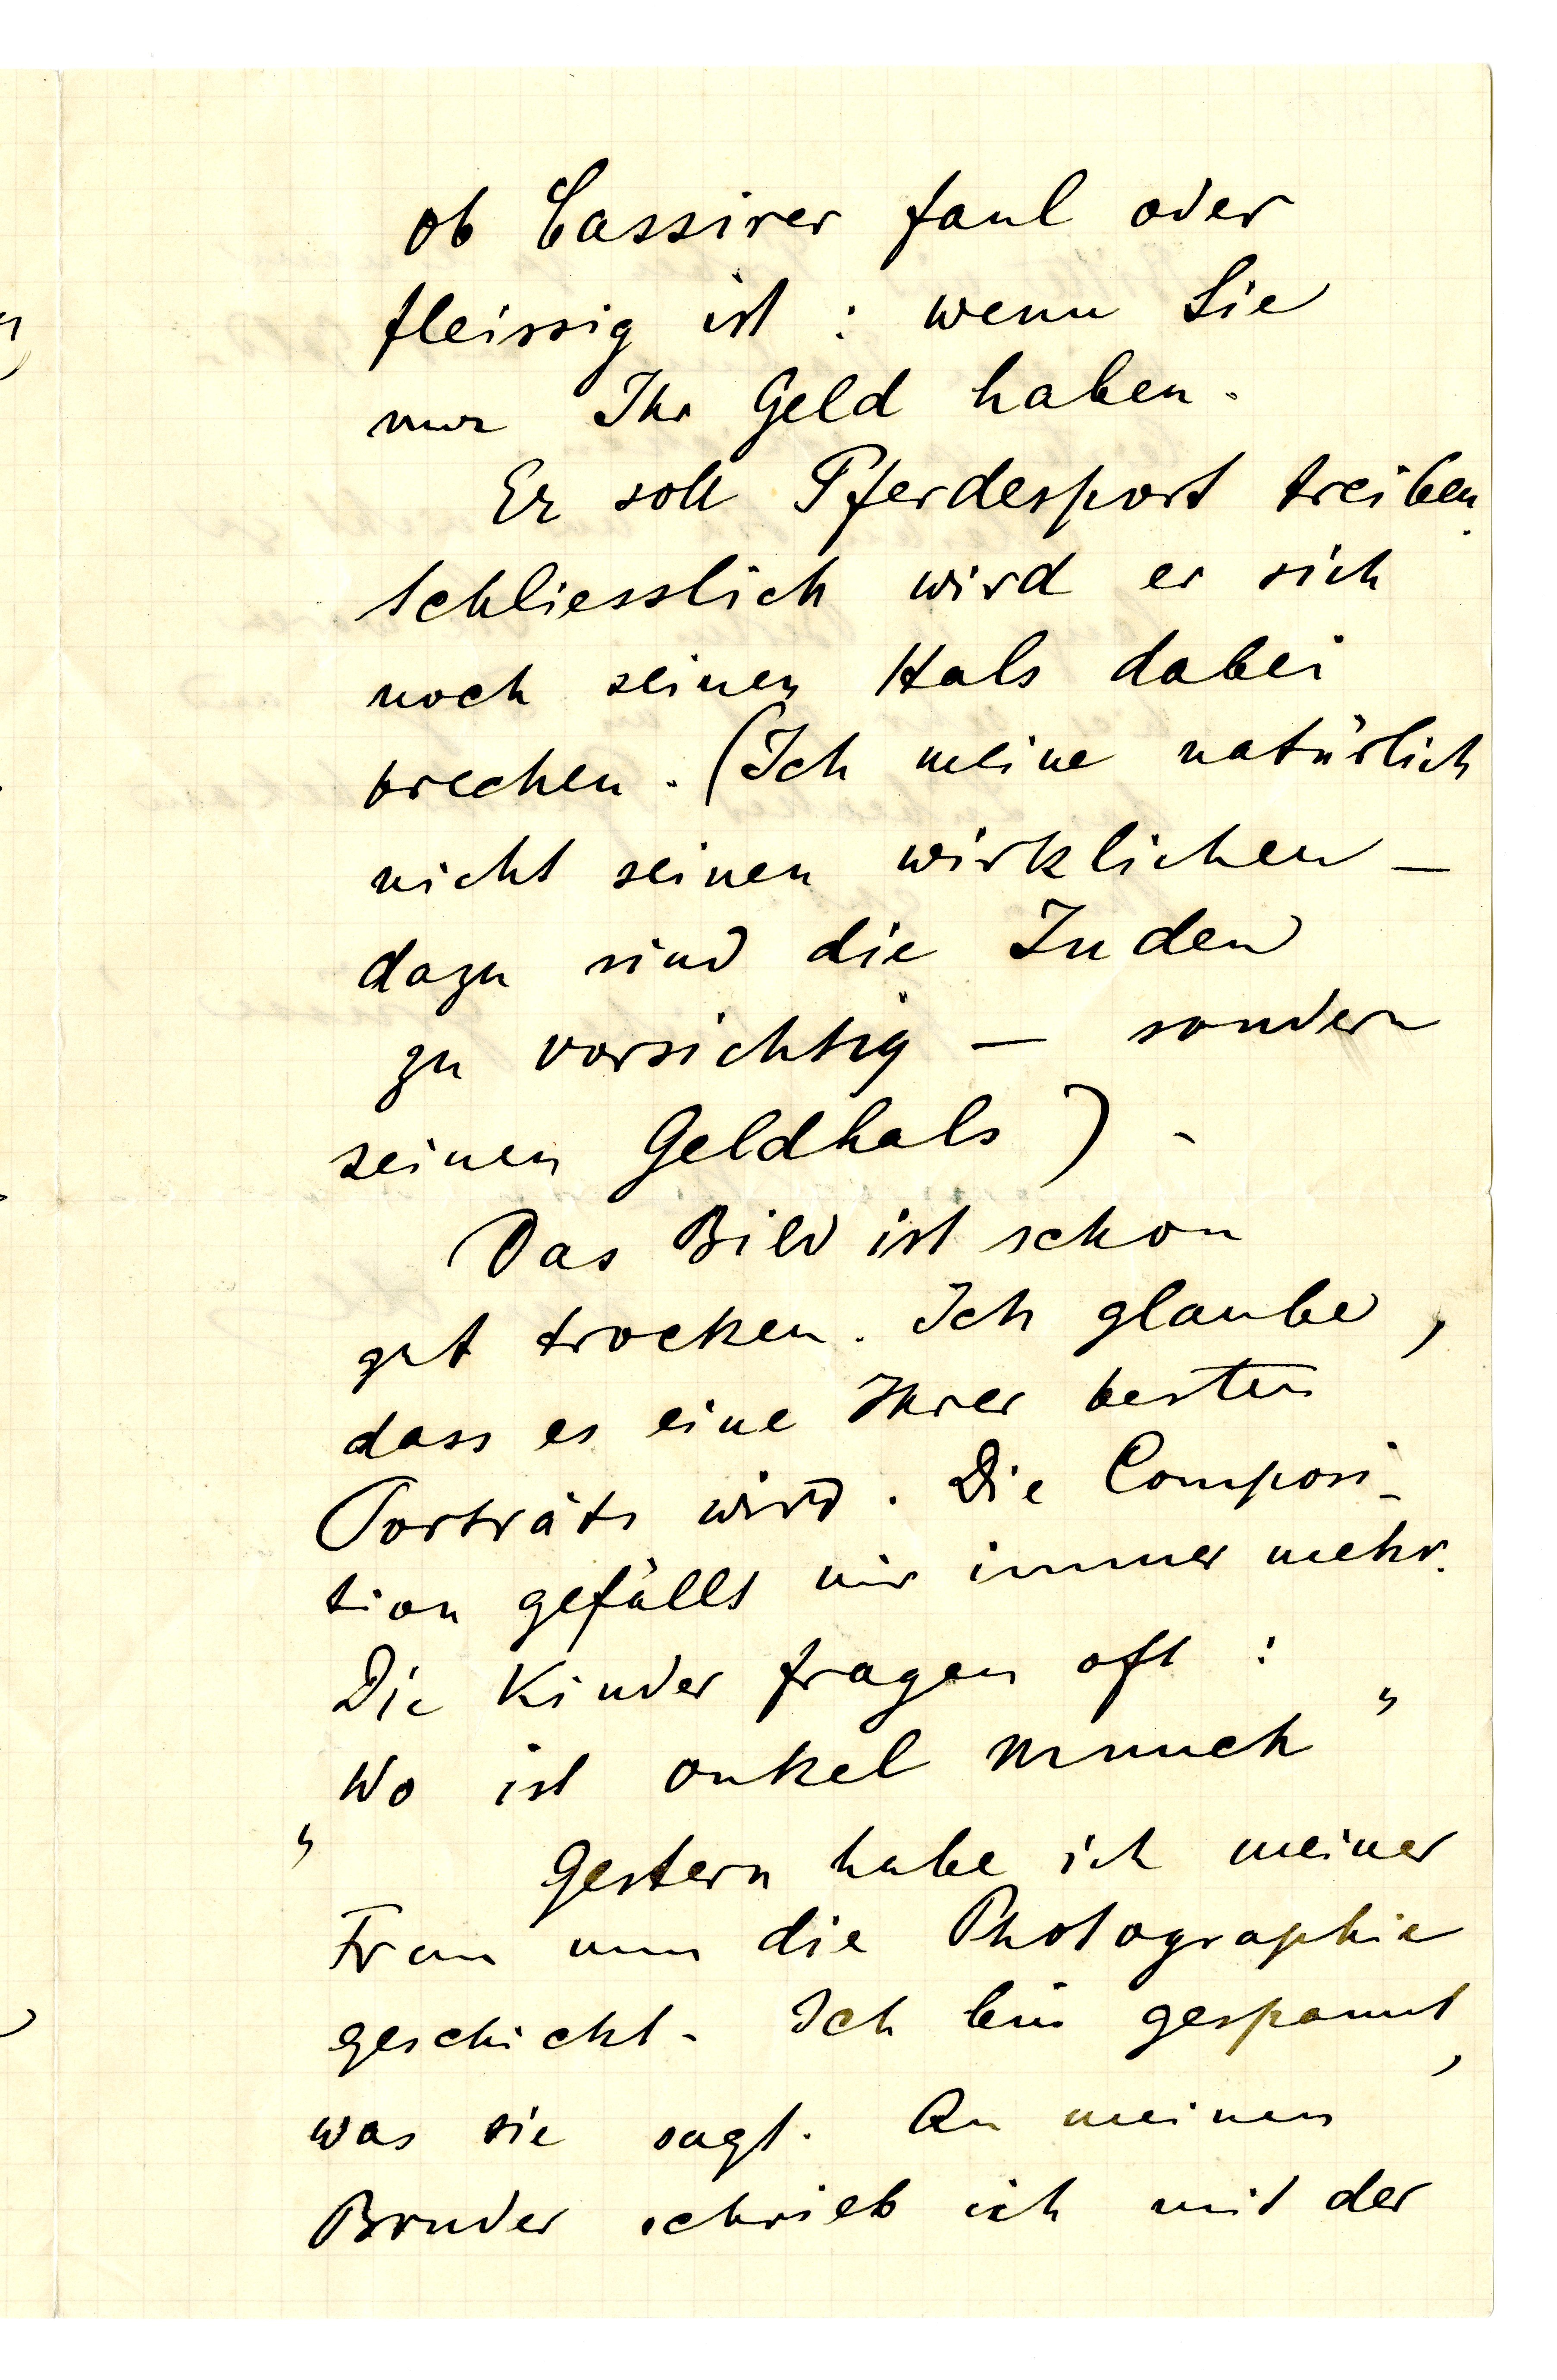 ob Cassirer faul oder
fleissig ist : wenn Sie
nur Ihr Geld haben.
Er soll Pferdesport treiben.
Schliesslich wird er sich
noch seinen Hals dabei
brechen. (Ich meine natürlich
nicht seinen wirklichen —
dazu sind die Juden
zu vorsichtig — sondern
seinen Geldhals).
Das Bild ist schon
gut trocken. Ich glaube,
dass es eine Ihrer besten
Porträts wird. Die Composi-
tion gefällt mir immer mehr.
Die Kinder fragen oft :
„Wo ist onkel Munch"
Gestern habe ich meiner
Frau nun die Photographie
geschickt. Ich bin gespannt,
was sie sagt. An meinen
Bruder schrieb ich mit der